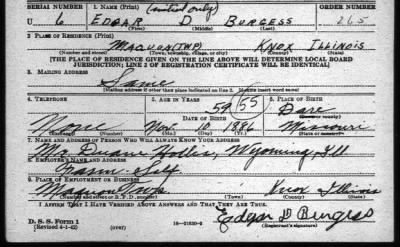 SERIAL NUMBER 1. NAME (Print) (initial only) ORDER NUMBER
U 6 EDGAR D BURGESS 265
(First) (Middle) (Last)
2. PLACE OF RESIDENCE (Print)
MAQUON (TWP) KNOX ILLINOIS
(Number and street) (Town, township, village, or city) (County) (State)
[THE PLACE OF RESIDENCE GIVEN ON THE LINE ABOVE WILL DETERMINE LOCAL BOARD
JURISDICTION; LINE 2 OF REGISTRATION CERTIFICATE WILL BE IDENTICAL]
3. MAILING ADDRESS
Same
[Mailing address if other than place indicated on line 2. If same insert word same]
4. TELEPHONE 5. AGE IN YEARS 6. PLACE OF BIRTH
59 (55) Dare
DATE OF BIRTH (Town or county)
None Nov. 10 1886 Missouri
(Exchange) (Number) (Mo.) (Day) (Yr.) (State or country)
7. NAME AND ADDRESS OF PERSON WHO WILL ALWAYS KNOW YOUR ADDRESS
Mr. Duane Hollis, Wyoming, Ill
8. EMPLOYER'S NAME AND ADDRESS
Farm Self
9. PLACE OF EMPLOYMENT OR BUSINESS
Maquon Twp. Knox Illinois
(Number and street or R. F. D. number) (Town) (County) (State)
I AFFIRM THAT I HAVE VERIFIED ABOVE ANSWERS AND THAT THEY ARE TRUE.
Edgar D Burgess
D. S. S. Form 1
(Revised 4-1-42) (over) 16—21630-2 (Registrant's signature)